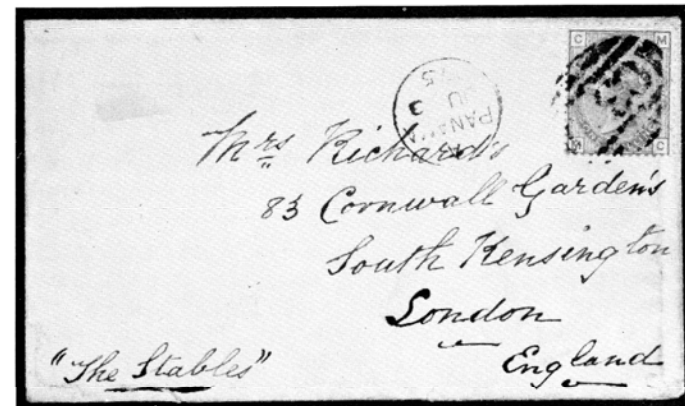 C M
M C
PANAMA
A
JU 3
75
Mrs Richards
83 Cornwall Garden's
South Kensington
London
England
"The Stables"